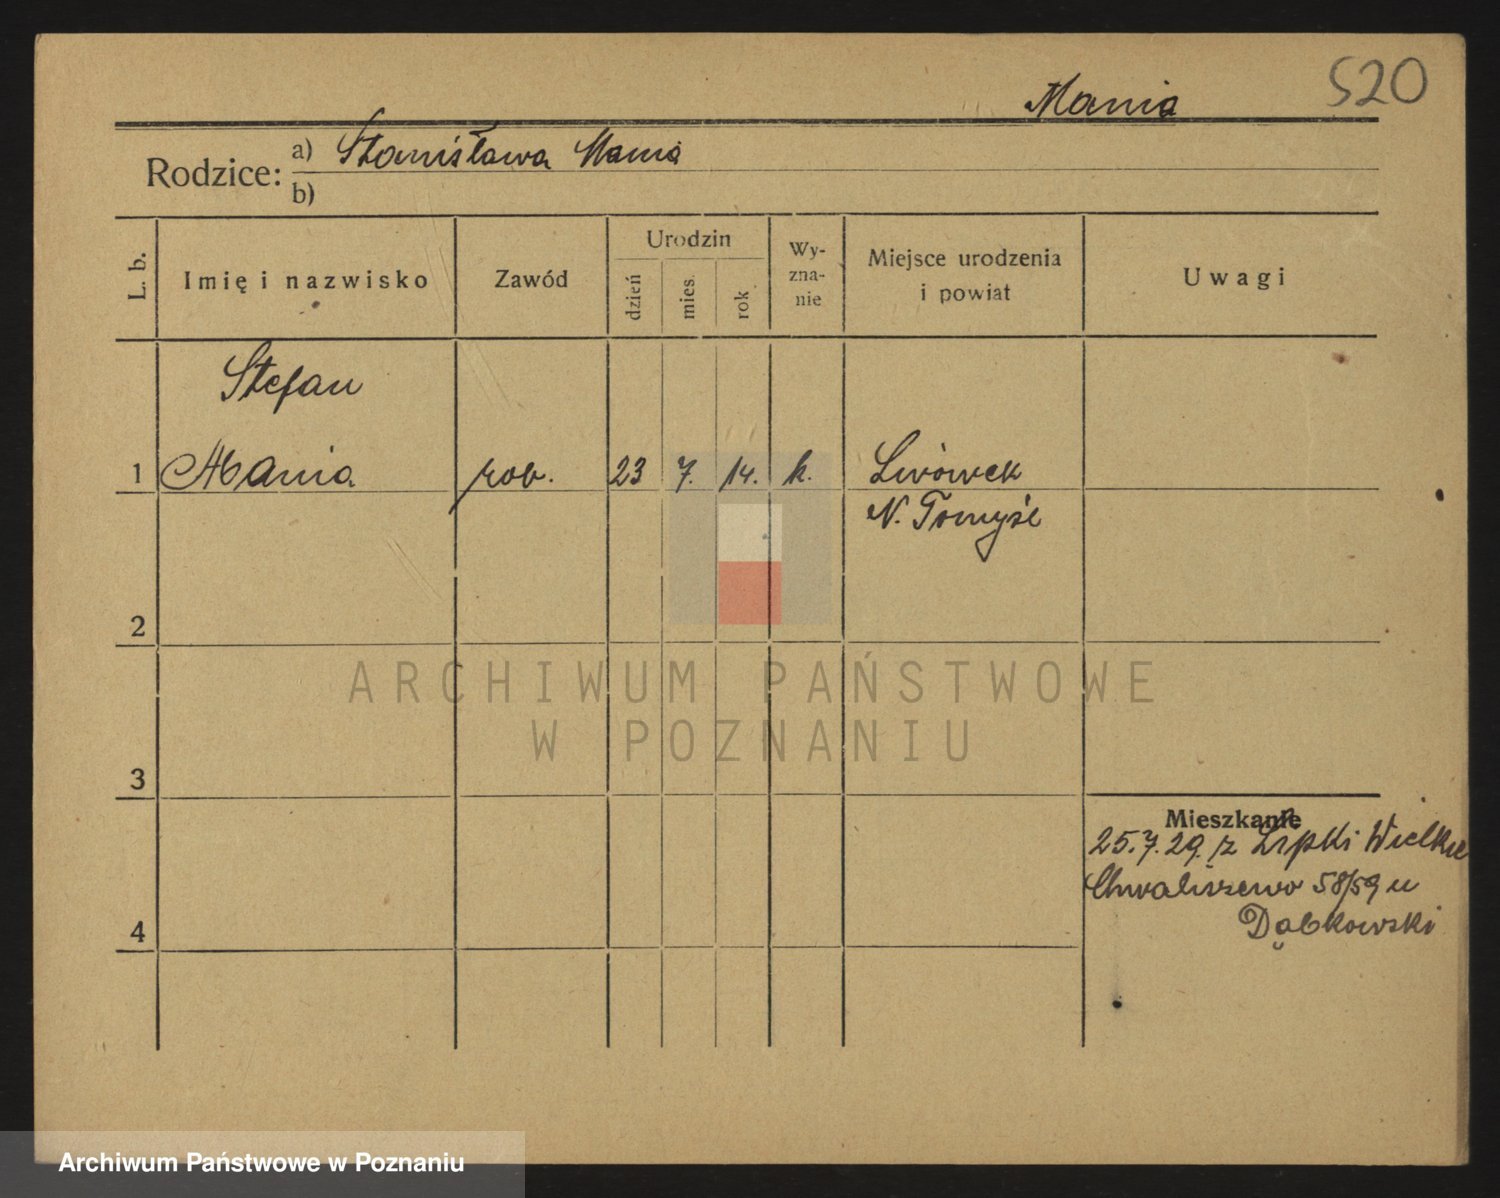 520
Mania
Rodzice: a) Stanisława Mania
b)
L. b. Imię i nazwisko Zawód Urodzin dzień mies. rok Wy-zna-nie Miejsce urodzenia i powiat Uwagi
Stefan
1 Mania rob. 23 7. 14. k. Lwówek
N. Tomyśl
2
ARCHIWUM PAŃSTWOWE
W POZNANIU
3
Mieszkanie
25.7.29. z Lipki Wielkie
Chwaliszewo 58/59 u
4 Dąbkowski
Archiwum Państwowe w Poznaniu